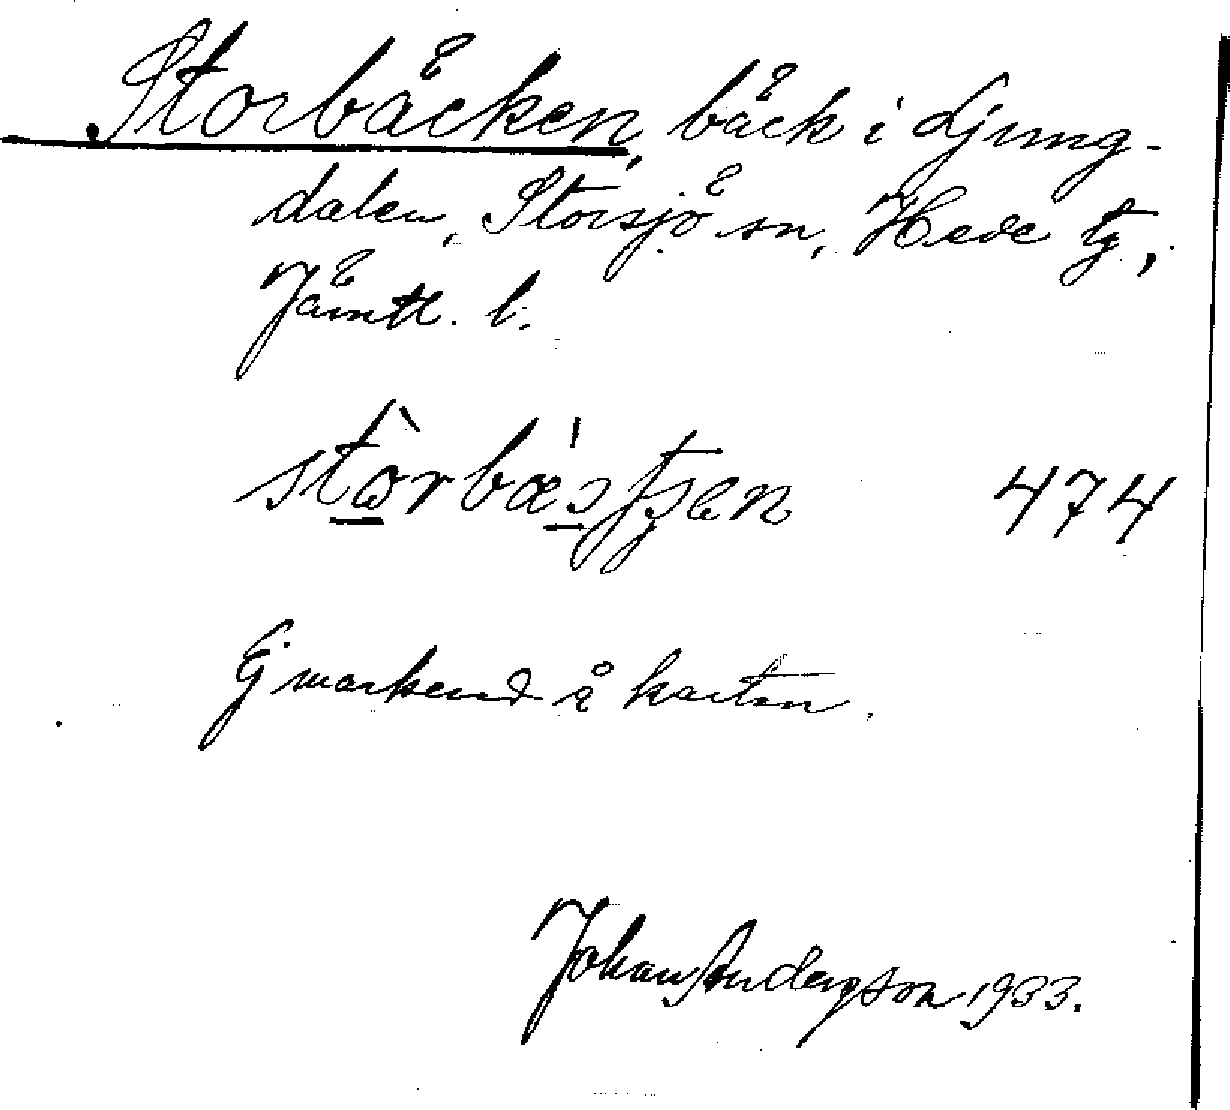 Storbäcken, bäck i Ljung-
dalen, Storsjö sn, Hede tg,
Jämtl. l.
474
Ej markerad å kartan.
Johan Andersson 1933.